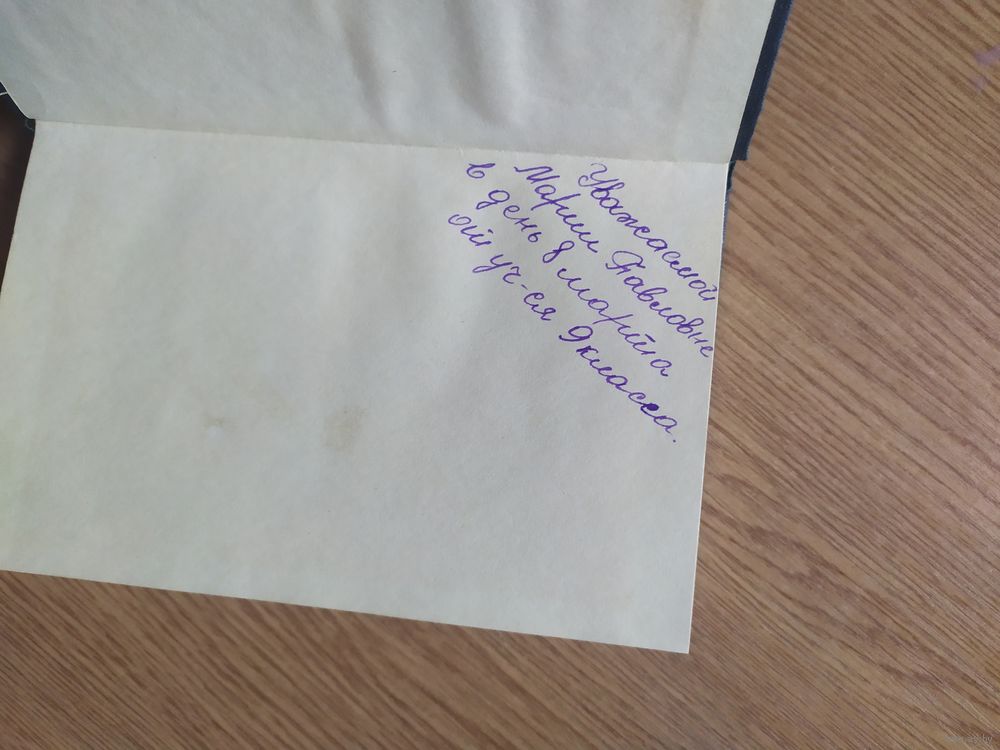 Уважаемой
Марии Павловне
в день 8 марта
от уч-ся 9 класса.